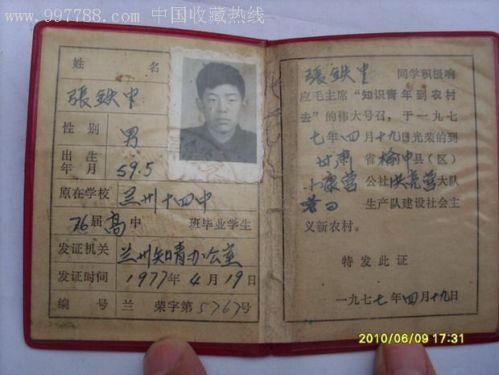 www.997788.com 中国收藏热线
姓名
張铁中
性别 男
出生年月 59.5
原在学校 兰州十四中
76届高中 班毕业学生
发证机关 兰州知青办公室
发证时间 1977年4月19日
编号 兰 荣字第5767号
張铁中 同学积极响
应毛主席“知识青年到农村
去”的伟大号召，于一九七
七年四月十九日光荣的到
甘肃省榆中县（区）
小康营公社洪亮营大队
生产队建设社会主
义新农村。
特发此证
一九七七年四月十九日
2010/06/09 17:31